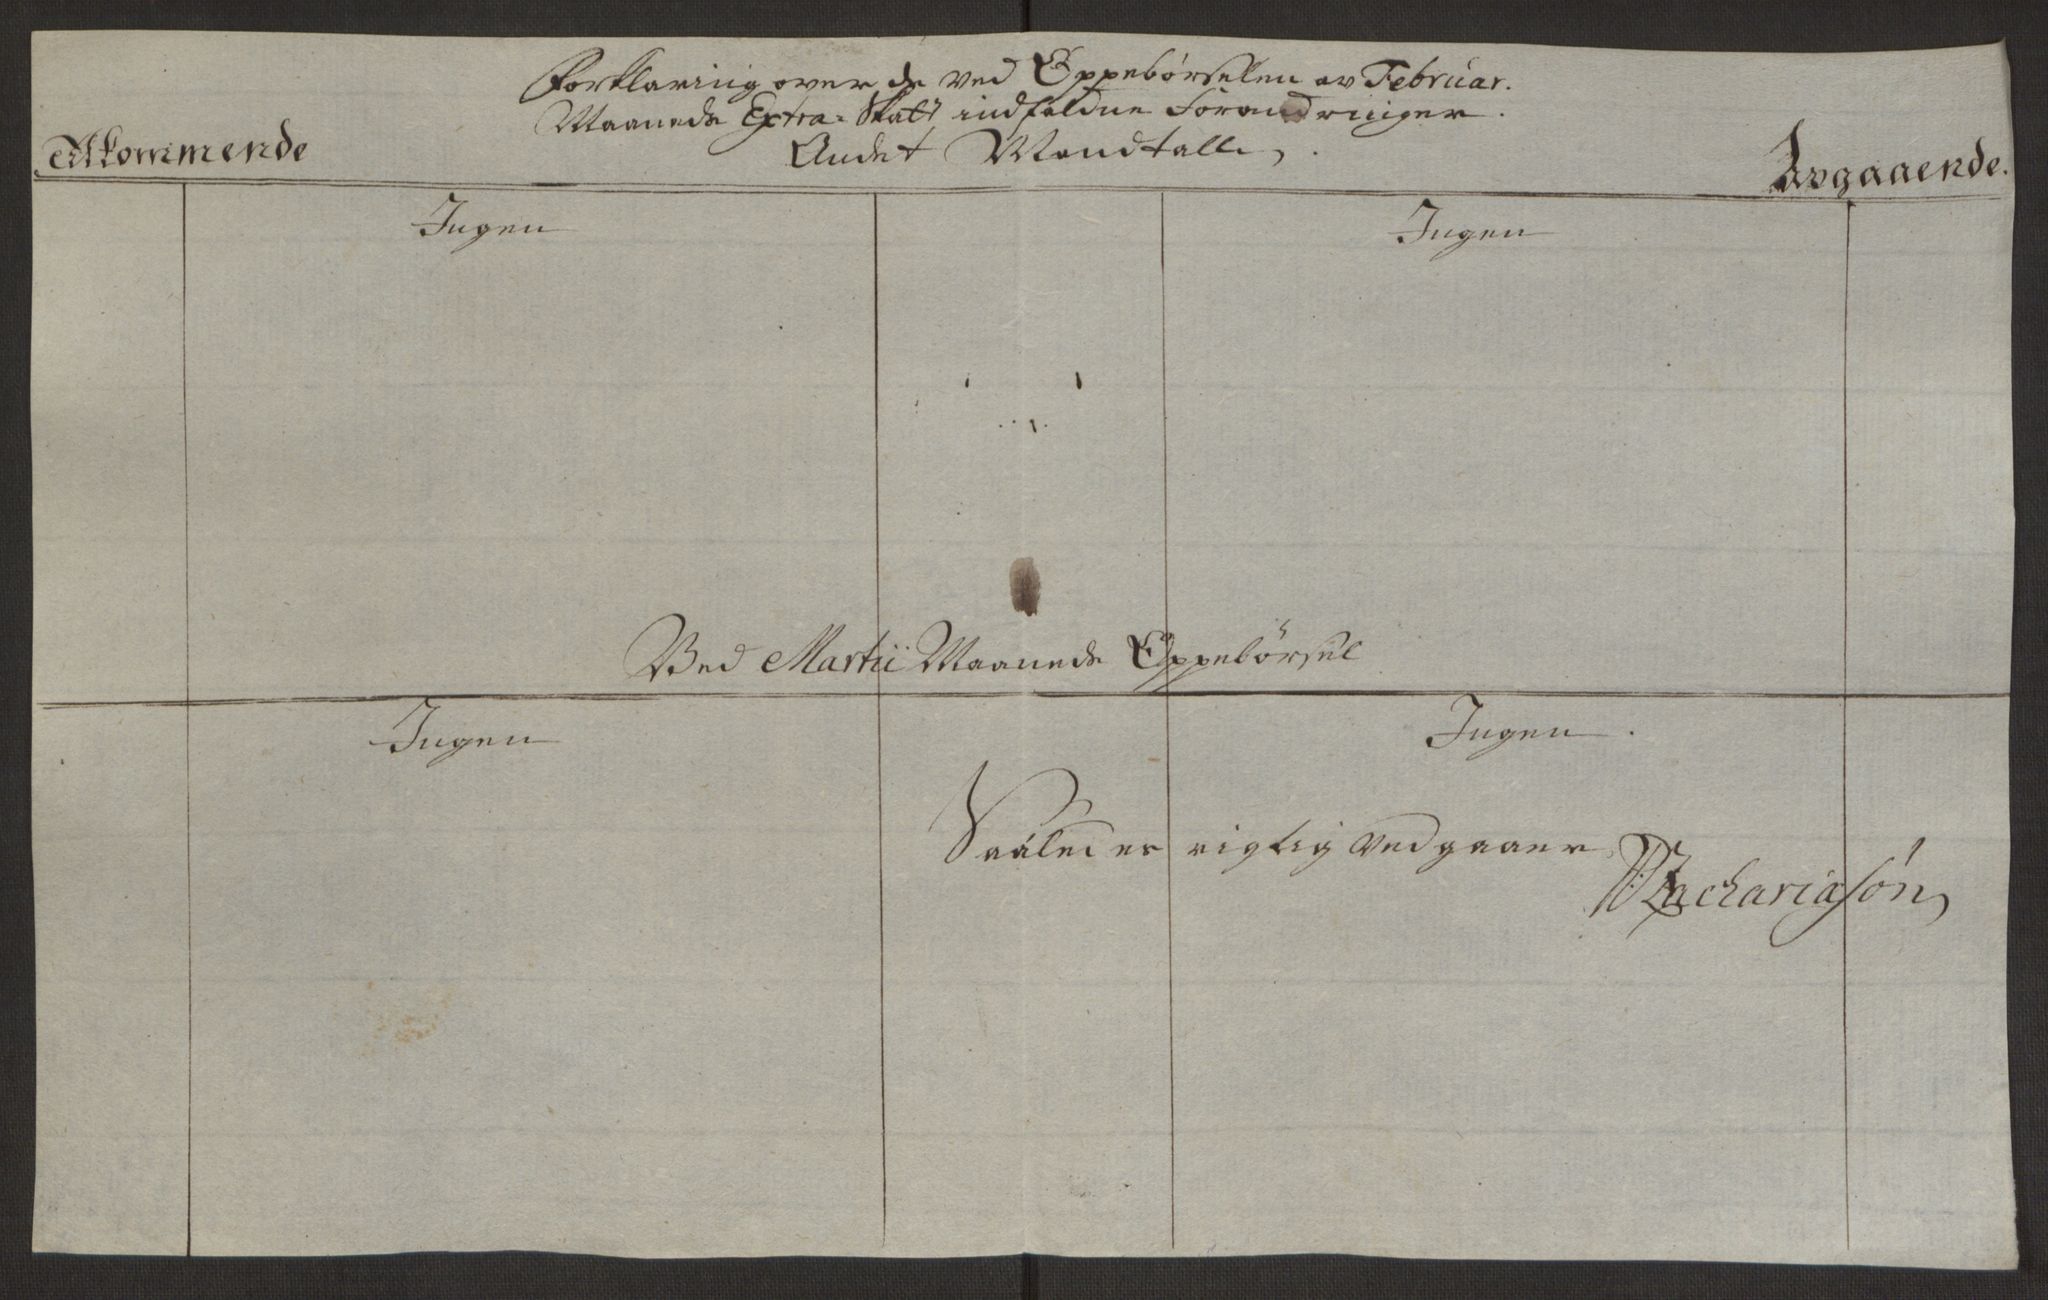 Forklaring over de ved Oppebörselen av Februar.
Maaneds Extra-Skatt indfaldne Forandringer.
Andet Mandtall,
Tilkommende
Avgaaende.
Ingen
Ingen
Ved Martii Maaneds Oppebörsel
Ingen
Ingen.
Saaledes rigtig vedgaaer
Zachariasön